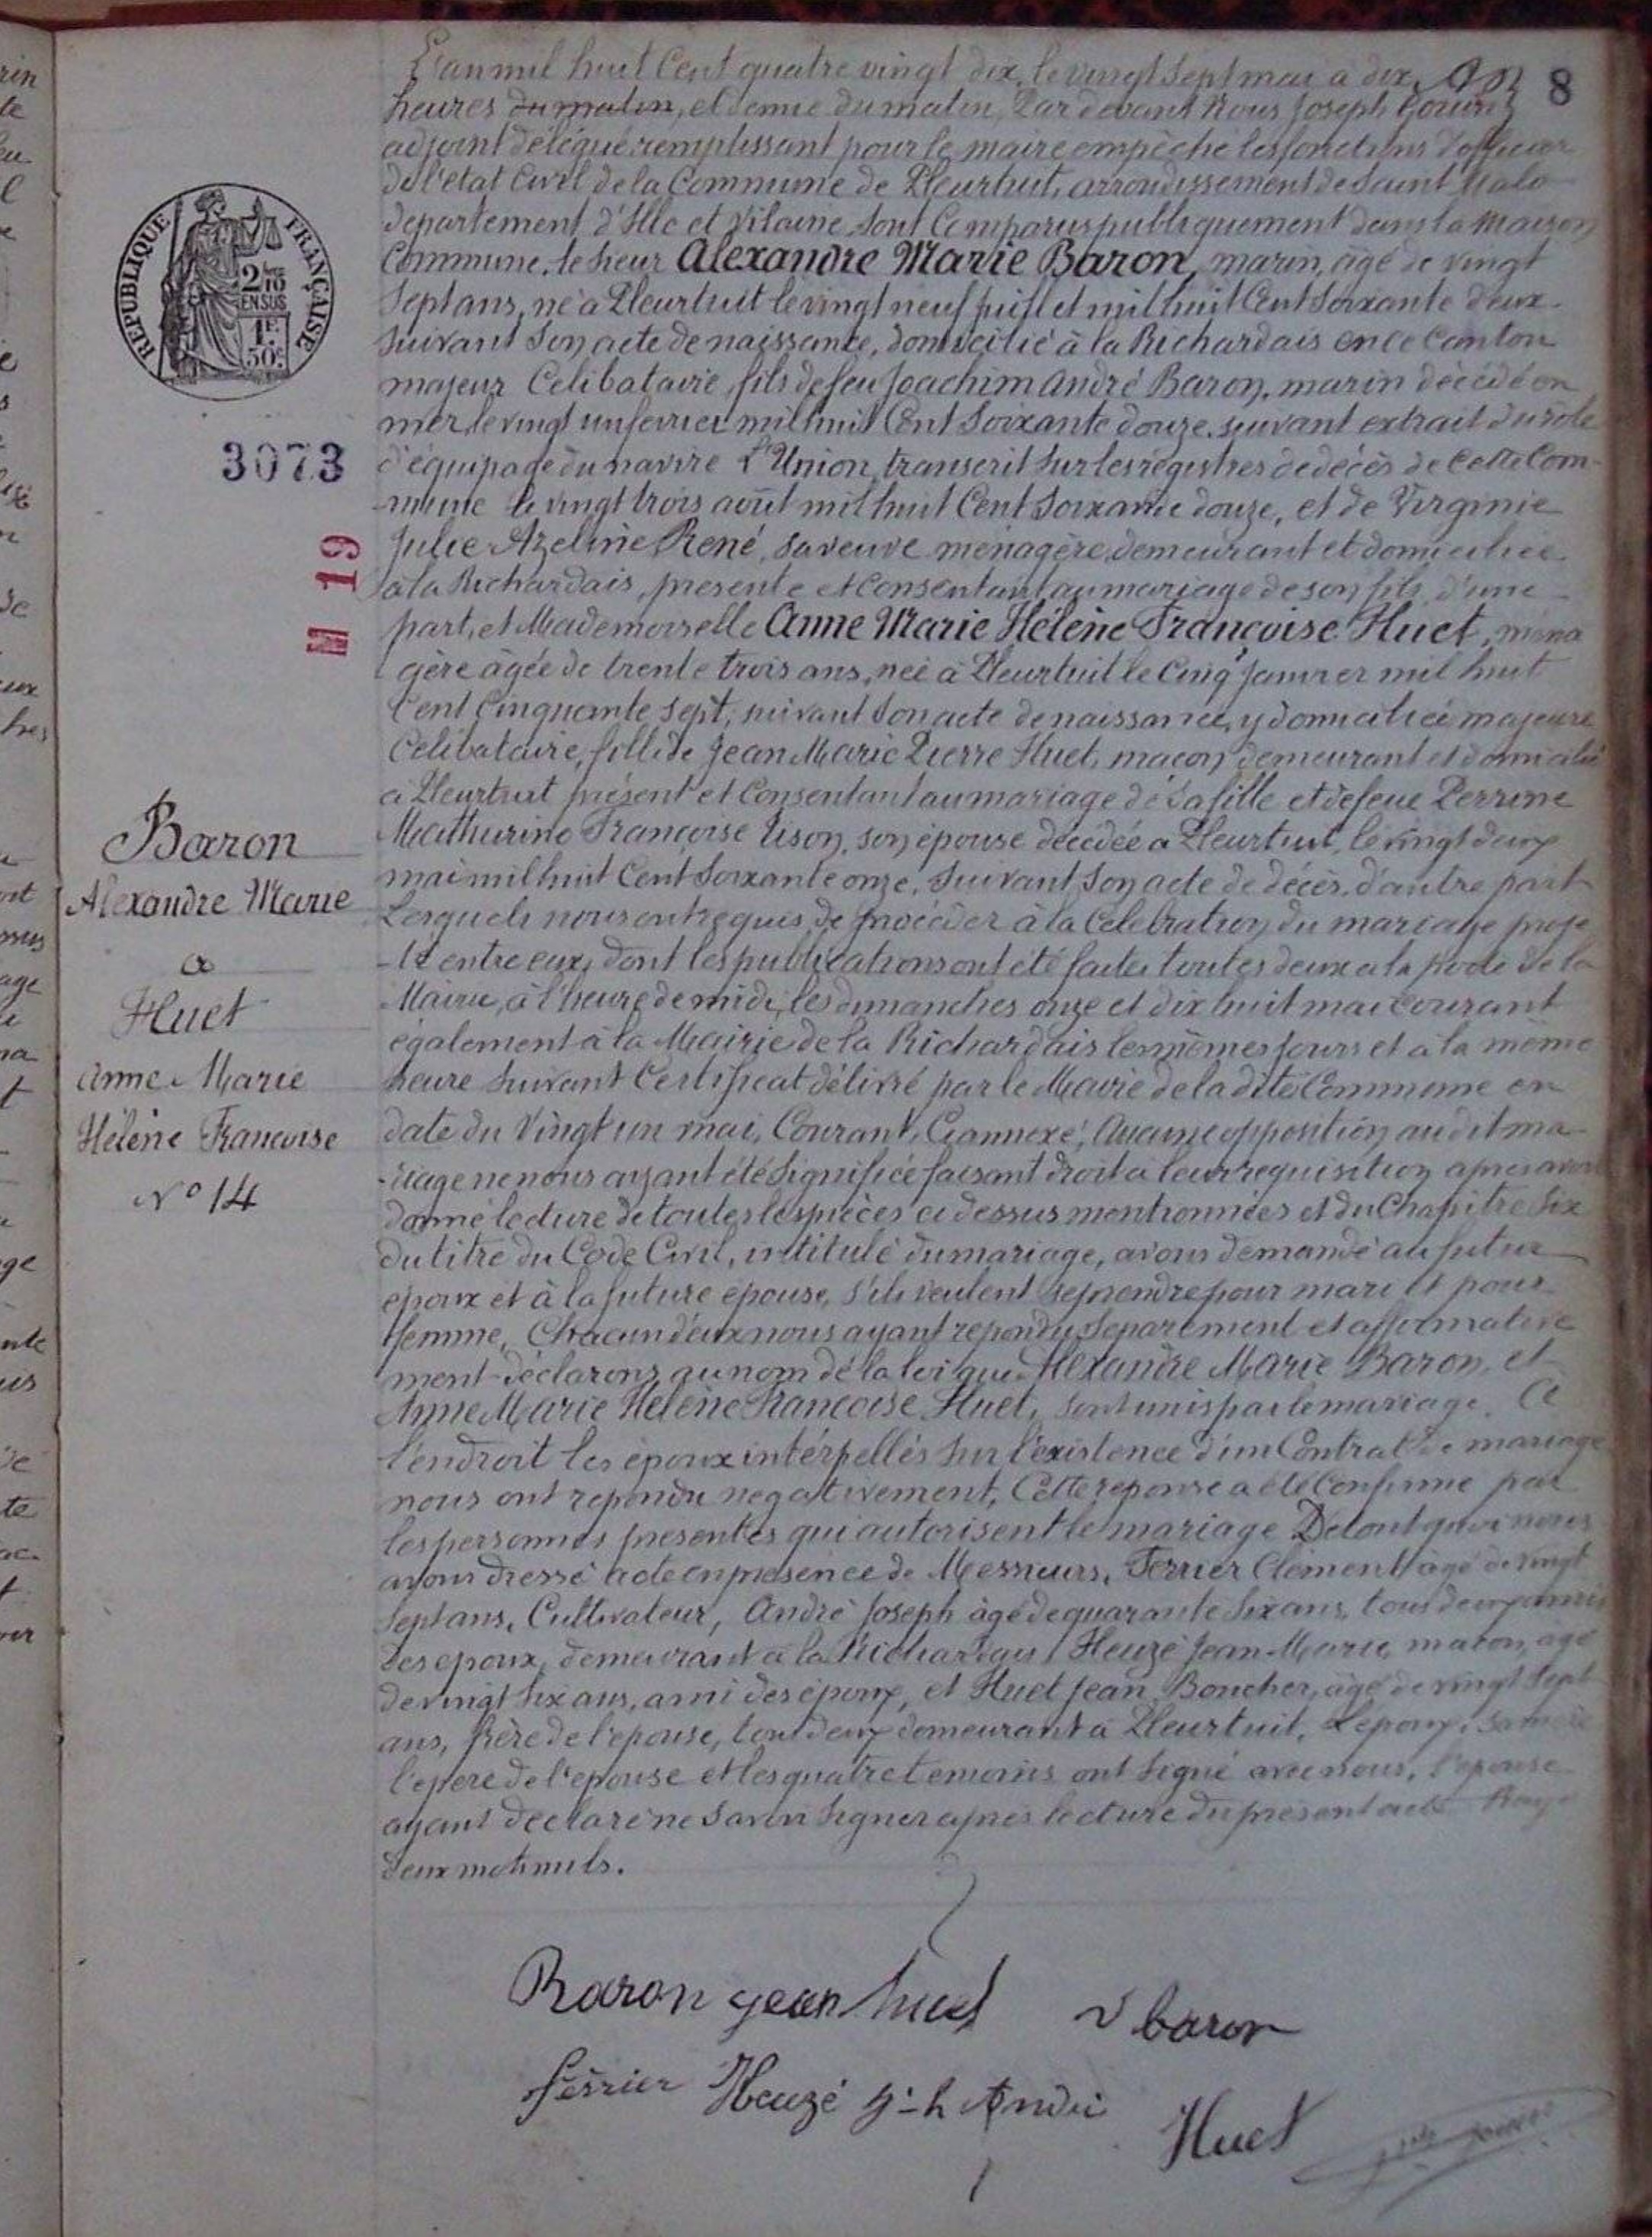 8
L'an mil huit Cent quatre vingt dix, le vingt Sept mai a dix
heures du matin, et demie du matin, Par devant Nous Joseph Gouin
adjoint délégué remplissant pour le maire empêché les fonctions d'officier
de l'état Civil de la Commune de Pleurtuit, arrondissement de Saint Malo
département d'Ille et Vilaine sont Comparus publiquement dans la Maison
Commune, le sieur Alexandre Marie Baron, marin, âgé de vingt
Sept ans, né à Pleurtuit le vingt neuf juillet mil huit Cent Soixante deux
suivant son acte de naissance, domicilié à la Richardais en ce Canton
majeur Célibataire, fils de feu Joachim André Baron, marin décédé en
mer, le vingt un fevrier mil huit Cent Soixante douze, suivant extrait du role
d'équipage du navire L'Union, transcrit sur les régistres de décès de Cette Com-
-mune le vingt trois août mil huit Cent Soixante douze, et de Virginie
Julie Azeline René, sa veuve ménagère, demeurant et domiciliée
à la Richardais, présente et Consentant au mariage de son fils, d'une
part, et Mademoiselle Anne Marie Hélène Françoise Huet, ména
gère âgée de trente trois ans, née à Pleurtuit le Cinq Janvier mil huit
Cent Cinquante Sept, suivant son acte de naissance, y domiciliée majeure
Célibataire, fille de Jean Marie Pierre Huet, maçon, demeurant et domicilié
à Pleurtuit présent et Consentant au mariage de sa fille et de feue Perrine
Mathurine Françoise Uson, son épouse décédée a Pleurtuit, le vingt deux
mai mil huit Cent Soixante onze, Suivant son acte de décès, d'autre part
Lesquels nous ont requis de procéder à la Célébration du mariage proje
-té entre eux, dont les publications ont été faites toutes deux a la porte de la
Mairie, à l'heure de midi, les dimanches onze et dix huit mai Courant
également à la Mairie de la Richardais les mêmes jours et à la même
heure suivant Certificat délivré par le Maire de la dite Commune en
date du Vingt un mai, Courant, Ci annexé, Aucune opposition au dit ma-
-riage ne nous ayant été Signifiée faisant droit à leur requisition apres avoir
donné lecture de toutes les pièces ci dessus mentionnées et du Chapitre Six
du titre du Code Civil, intitulé du mariage, avons demandé au futur
époux et à la future épouse, s'ils veulent se prendre pour mari et pour
femme, Chacun d'eux nous ayant repondu separément et affirmative
ment déclarons au nom de la loi que Alexandre Marie Baron, et
Anne Marie Hélène Françoise Huet, sont unis par le mariage. A
l'endroit les époux interpellés sur l'existence d'un Contrat de mariage
nous ont repondu negativement, Cette reponse a été Confirmé par
les personnes presentes qui autorisent le mariage De tout quoi nous
avons dressé acte en présence de Messieurs, Ferrier Clément âgé de vingt
Sept ans, Cultivateur, André Joseph âgé de quarante Six ans, tous deux amis
des époux, demeurant à la Richardais, Heuzé Jean-Marie, maçon, âgé
de vingt Six ans, ami des époux, et Huet Jean, Boucher, âgé de vingt Sept
ans, frère de l'épouse, tous deux demeurant à Pleurtuit, L'époux, sa mère
le père de l'épouse et les quatre témoins ont signé avec nous, l'épouse
ayant declaré ne savoir signer après lecture du présent acte Rayé
deux mots nuls.
REPUBLIQUE FRANÇAISE
2/10
EN SUS
1F.
50c.
3073
M 19
Baron
Alexandre Marie
a
Huet
Anne Marie
Hélène Francoise
N° 14
Baron jean huet v baron
ferrier Heuzé j-h André
Huet